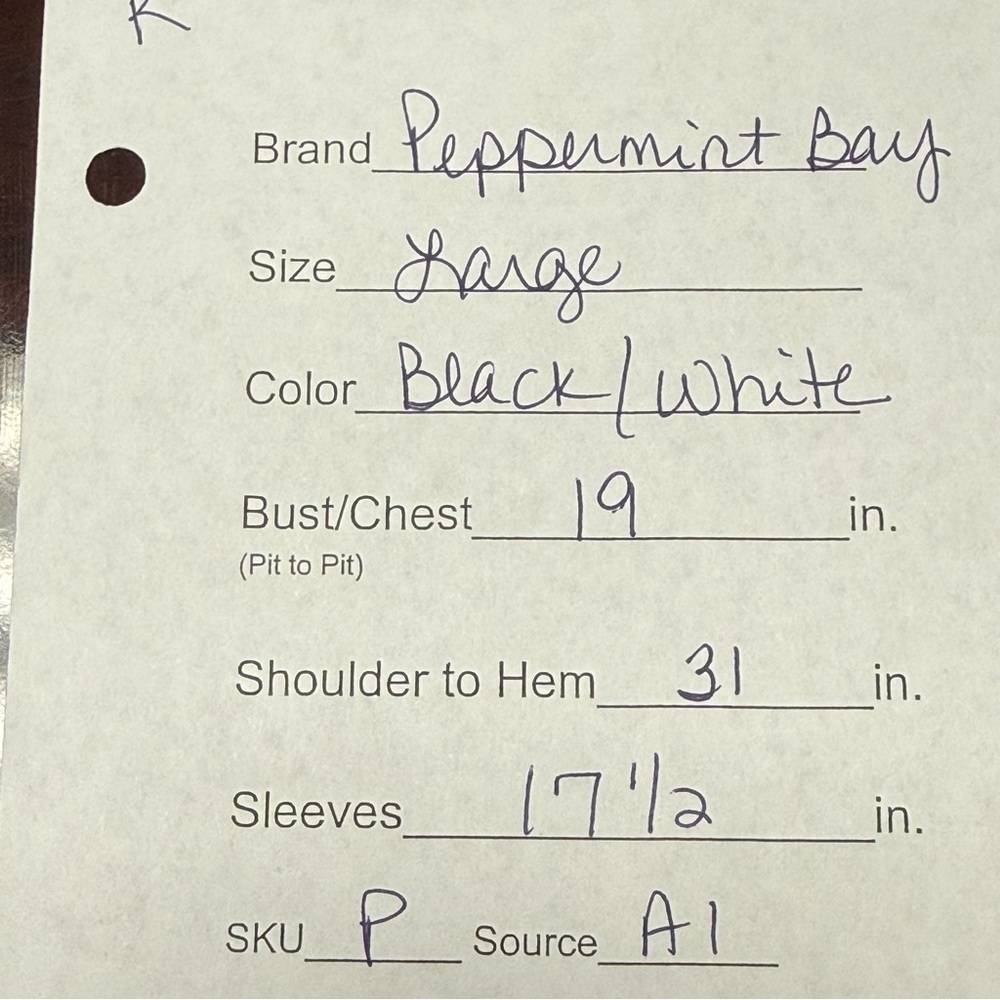 K
Brand Peppermint Bay
Size Large
Color Black/White
Bust/Chest 19 in.
(Pit to Pit)
Shoulder to Hem 31 in.
Sleeves 17 1/2 in.
SKU P Source A1